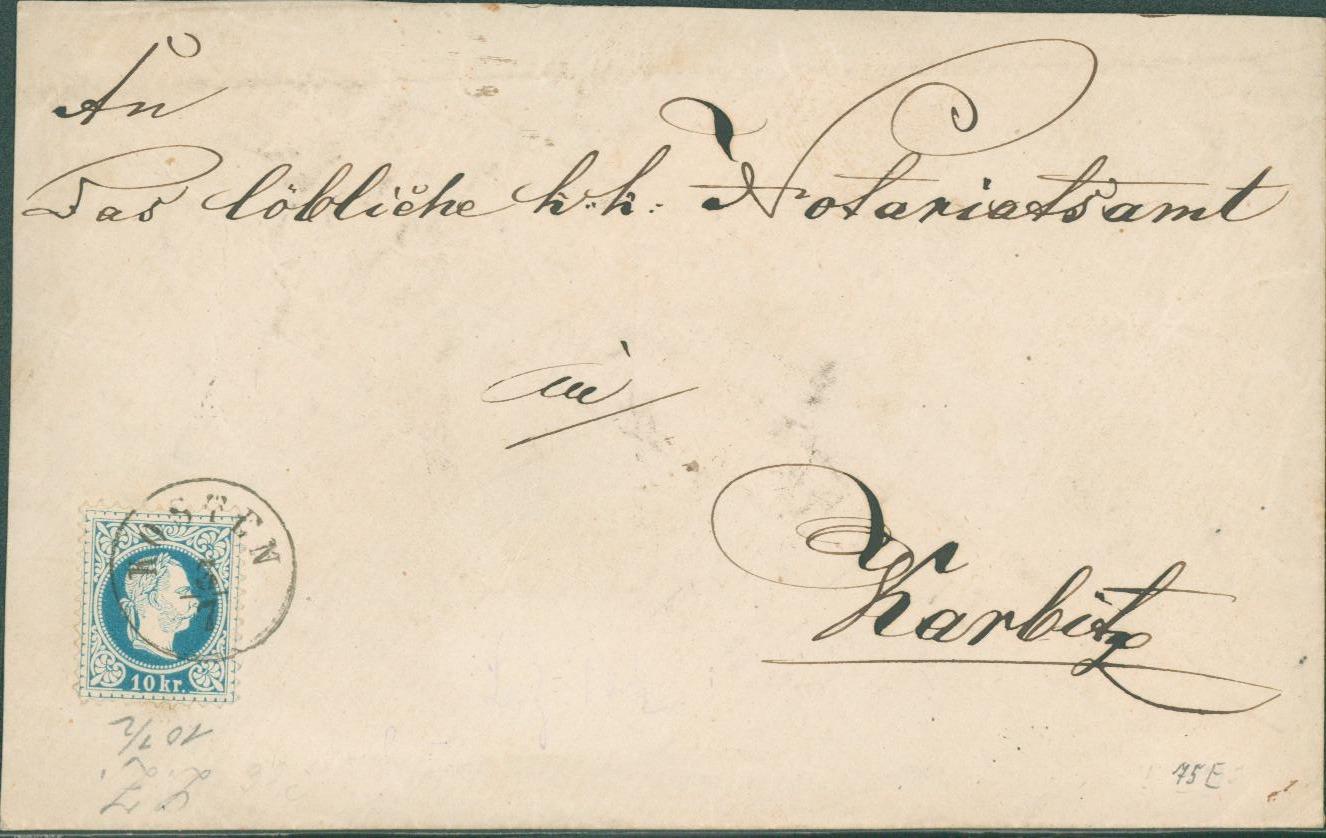 An
Das löbliche k. k. Notariatsamt
in
Karbitz
KOSTEN
10 kr.
75 E